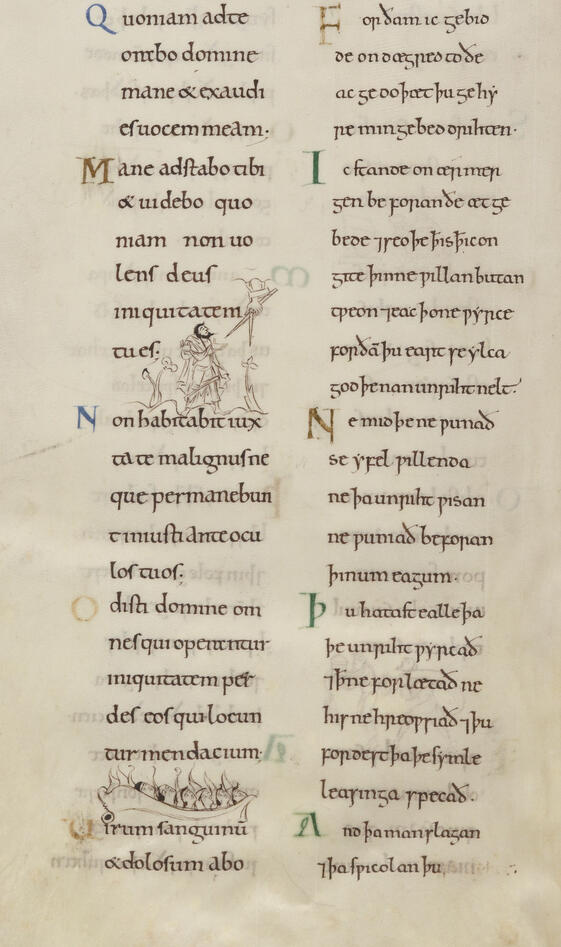 Quoniam ad te
orabo domine
mane & exaudi
es uocem meam.
Mane adstabo tibi
& uidebo quo
niam non uo
lens deus
iniquitatem
tu es.
Non habitabit iux
ta te malignus ne
que permanebun
t iniusti ante ocu
los tuos.
Odisti domine om
nes qui operentur
iniquitatem per
des eos qui locun
tur mendacium.
Uirum sanguinū
& dolosum abo
Forðam ic gebid
de on dægred to ðe
ac gedo þæt þu gehy
re min gebed drihten.
Ic stande on ær mer
gen beforan ðe æt ge
bede ⁊ seo þe
gite þinne ƿillan butan
tƿeon ⁊ eac þone ƿyrce
forðā þu eart se ylca
god þe nan unriht nelt.
Ne mid þe ne ƿunað
se yfel ƿillenda
ne þa unriht ƿisan
ne ƿuniað beforan
þinum eagum.
Þu hatast ealle þa
þe unriht ƿyrcað
⁊ hit ne forlætað ne
his ne hreoƿsiað ⁊ þu
fordest þa þe symle
leasinga specað.
And þa manslagan
⁊ þa sƿicolan þu